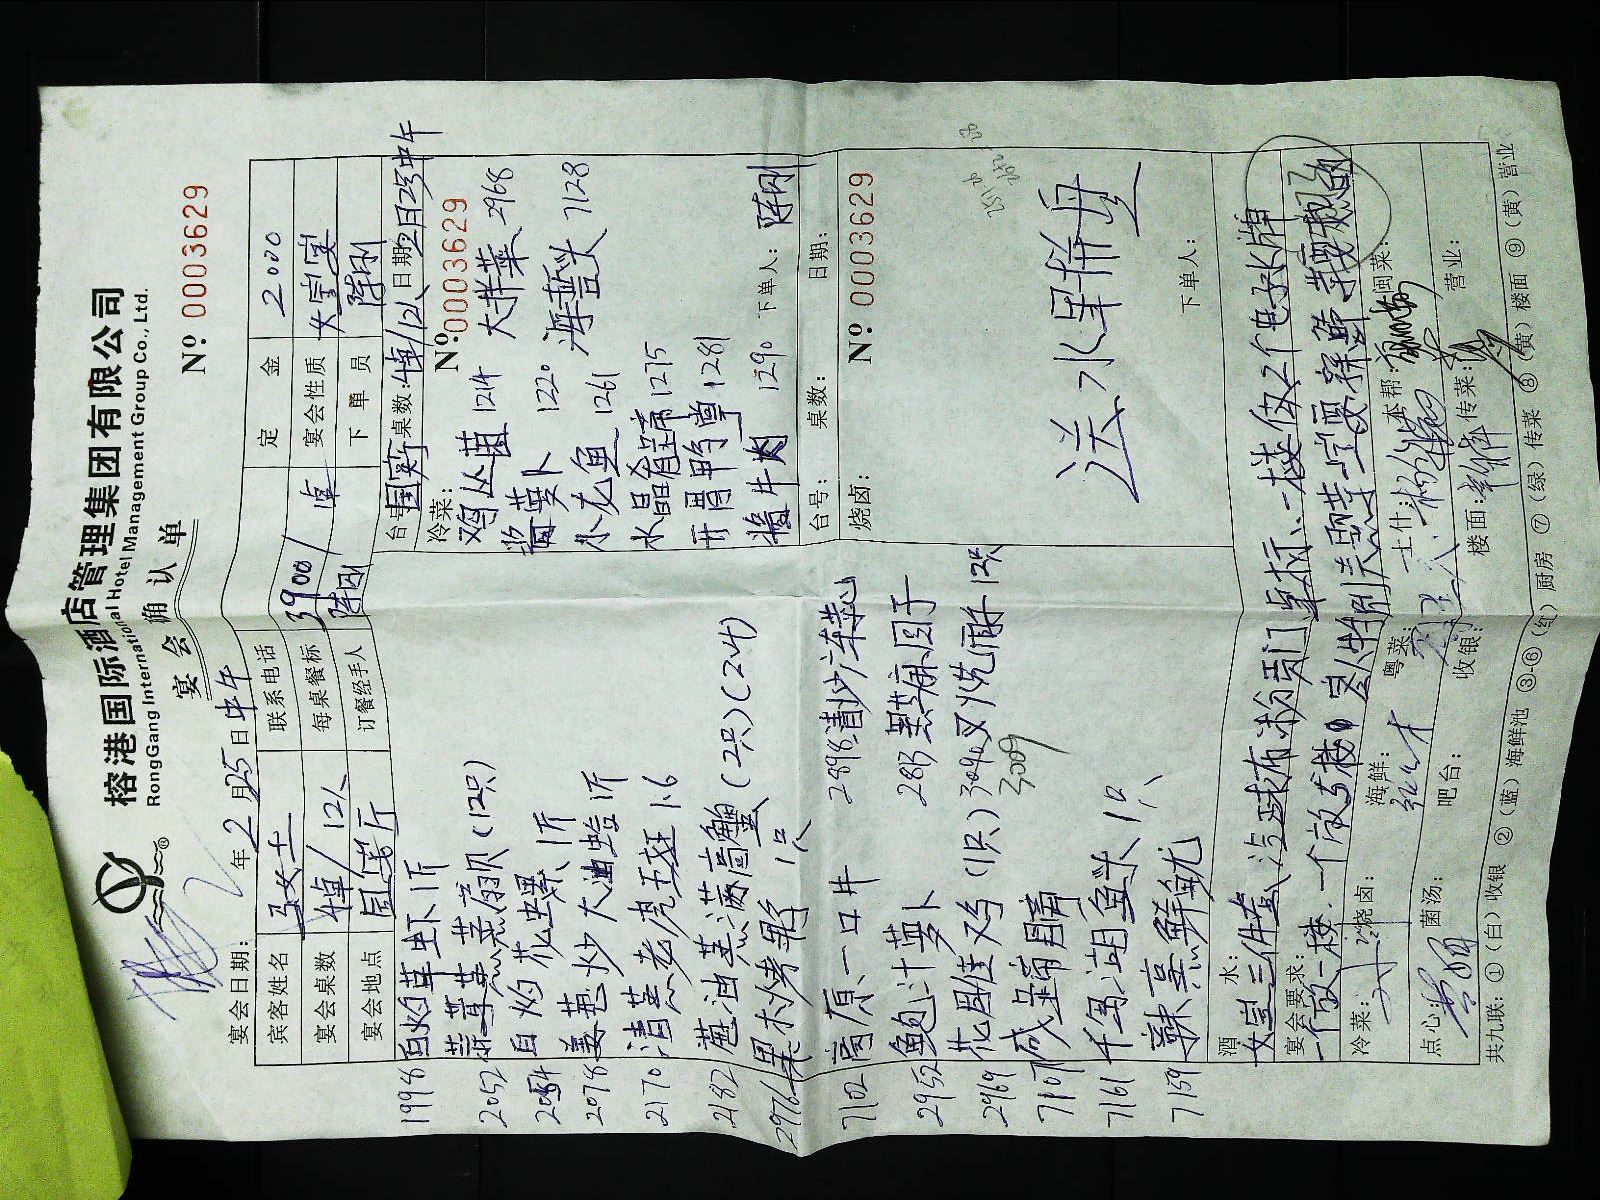 榕港国际酒店管理集团有限公司
RongGang International Hotel Management Group Co., Ltd.
宴会确认单
Nº 0003629
宴会日期： 年 2 月 25 日 中午
宾客姓名 马女士 联系电话 定金 2000
宴会桌数 1桌/12人 每桌餐标 3900/桌 宴会性质 女宝宴
宴会地点 国宾厅 订餐经手人 陈刚 下单员 陈刚
1998 白灼草虾 1斤
2052 蒜蓉蒸扇贝 (12只)
2054 白灼花螺 1斤
2078 姜葱炒大油蛤 1斤
2170 清蒸老虎斑 1.6
2182 葱油蒸 (2只) (2.4)
2976 果木烤鸭 1只
7102 高原一口牛
2952 鲍汁萝卜
2969 花雕鸡 (1只)
7107 咸蹄膀
7161 千岛湖鱼头 1只
7159 辣蒸鲜鱿
2898 清炒广东菜心
2813 黑麻团子
3042 叉烧酥 12只
3009
台号：国宾厅 桌数：1桌/12人 日期：2月25号中午
冷菜： Nº 0003629
鸡丛菌 1214 大拌菜 2968
酱萝卜 1220 海蜇头 7128
小龙鱼 1261
水晶肴蹄 1275
开胃鸭掌 1281
酱牛肉 1290 下单人：陈刚
台号： 桌数： 日期：
烧卤： Nº 0003629
送水果拼盘
下单人：
酒水：
女宝三件套、一楼仅2个电子水牌
宴会要求：
一个放一楼，一个放5楼
冷菜： 烧卤： 海鲜： 粤菜： 上什： 本帮： 闽菜：
点心： 菌汤： 吧台： 收银： 楼面： 传菜： 营业：
共九联：①（白）收银 ②（蓝）海鲜池 ③-⑥（红）厨房 ⑦（绿）传菜 ⑧（黄）楼面 ⑨（黄）营业